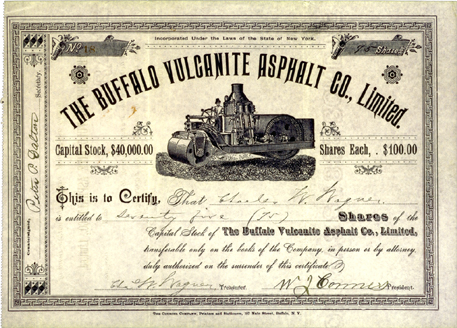 Incorporated Under the Laws of the State of New York.
No 18
75 Shares
THE BUFFALO VULCANITE ASPHALT CO., Limited.
Capital Stock, $40,000.00
Shares Each, $100.00
This is to Certify, That Charles W. Wagner
is entitled to Seventy five (75) Shares of the
Capital Stock of The Buffalo Vulcanite Asphalt Co., Limited,
transferable only on the books of the Company, in person or by attorney,
duly authorized on the surrender of this certificate
Chas W. Wagner Treasurer.
W J Conners President.
Peter C. Dalton Secretary.
Buffalo, N. Y.